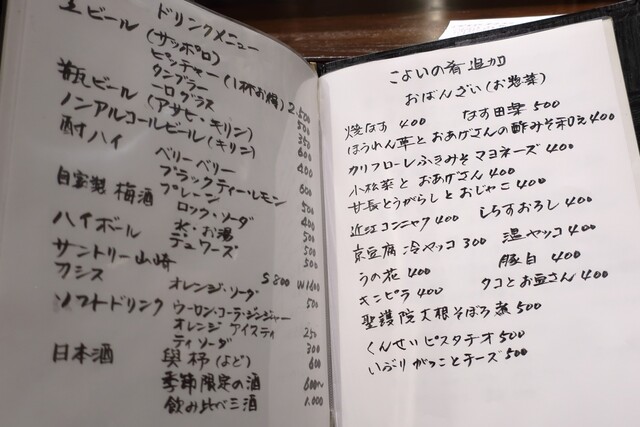 ドリンクメニュー
生ビール (サッポロ)
ピッチャー(1杯お得) 2.500
タンブラー 500
一口グラス 350
瓶ビール (アサヒ・キリン) 600
ノンアルコールビール(キリン) 400
酎ハイ
ベリーベリー
ブラックティー・レモン 600
自家製 梅酒 プレーン 500
ロック・ソーダ 400
水・お湯 500
ハイボール デュワーズ 500
サントリー山崎 S 800 W1600
カシス オレンジ・ソーダ 500
ソフトドリンク ウーロン・コーラ・ジンジャー
オレンジ アイスティ 250
ティソーダ 300
日本酒 與杯(など) 600
季節限定の酒 600〜
飲み比べ三酒 1.000
こよいの肴 追加
おばんざい(お惣菜)
焼なす 400 なす田楽 500
ほうれん草とおあげさんの酢みそ和え 400
カリフローレふきみそマヨネーズ 400
小松菜とおあげさん 400
甘長とうがらしとおじゃこ 400
近江コンニャク 400 しらすおろし 400
京豆腐 冷ヤッコ 300 温ヤッコ 400
うの花 400 豚白 400
キンピラ 400 タコとお豆さん 400
聖護院大根そぼろ煮 500
くんせいピスタチオ 500
いぶりがっことチーズ 500